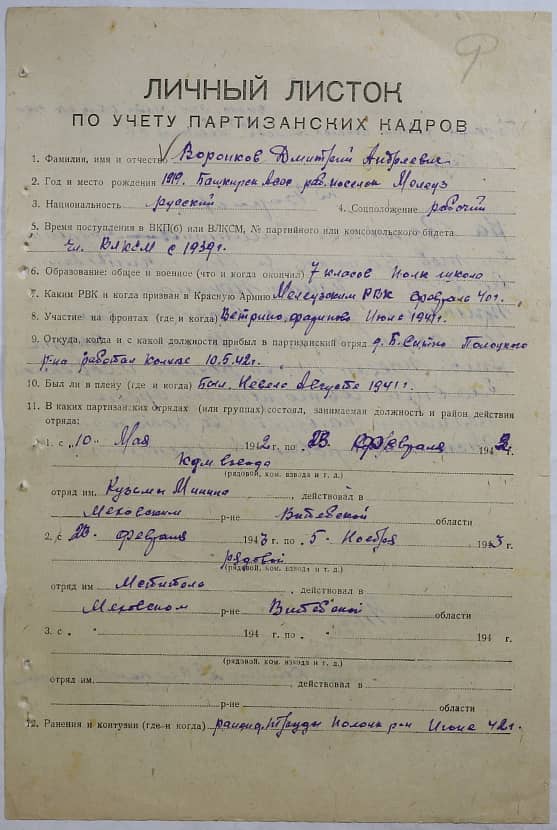 ЛИЧНЫЙ ЛИСТОК
ПО УЧЕТУ ПАРТИЗАНСКИХ КАДРОВ
1. Фамилия, имя и отчество Воронков Дмитрий Андреевич
2. Год и место рождения 1919. Башкирск Асср, раб. поселок Мелеуз
3. Национальность русский 4. Соцположение рабочий
5. Время поступления в ВКП(б) или ВЛКСМ, № партийного или комсомольского билета
чл. ВЛКСМ с 1939г.
6. Образование: общее и военное (что и когда окончил) 7 класов Полк школа
7. Каким РВК и когда призван в Красную Армию Мелеузским РВК февраль 40г.
8. Участие на фронтах (где и когда) Ветрино, Фариново Июль 1941г.
9. Откуда, когда и с какой должности прибыл в партизанский отряд д. Б. Ситно Полоцкого
р-на работал 10.5.42г.
10. Был ли в плену (где и когда) Был. Невель Августе 1941г.
11. В каких партизанских отрядах (или группах) состоял, занимаемая должность и район действия
отряда:
1. с „10“ Мая 1942 г. по „23“ февраля 194 г.
Ком взвода
(рядовой, ком. взвода и т. д.)
отряд им. Кузьмы Минина, действовал в
Меховском р-не Витебской области
2. с „23“ февраля 1943 г. по „5“ Ноября 1943 г.
рядовой
(рядовой, ком. взвода и т. д.)
отряд им , действовал в
Меховском р-не Витебской области
3. с „ “ 194 г. по „ “ 194 г.
(рядовой, ком. взвода и т. д.)
отряд им. , действовал в
р-не области
12. Ранения и контузии (где и когда) ранен д. Труды Полоцк р-н Июне 42г.